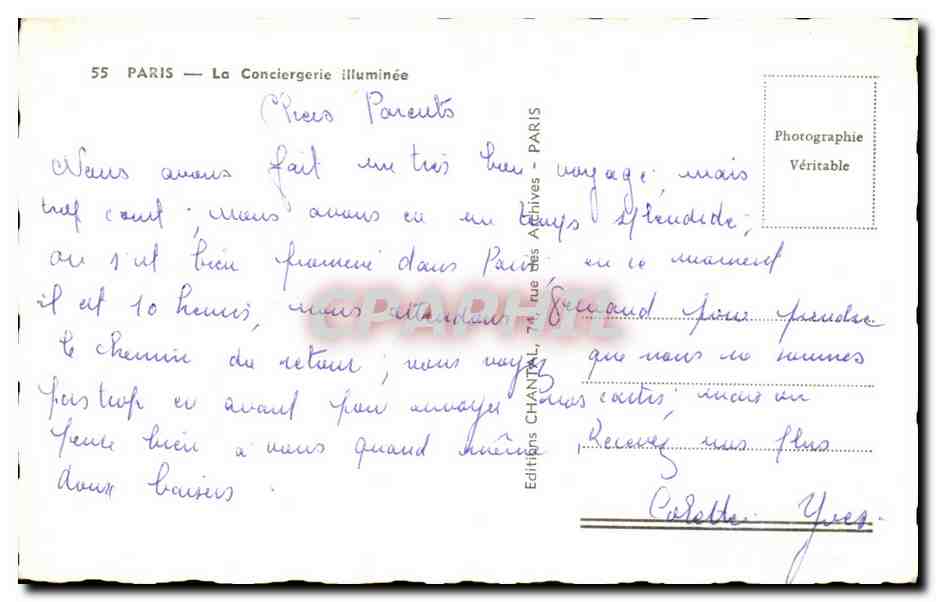 55 PARIS — La Conciergerie illuminée
Chers Parents
Nous avons fait un très bon voyage, mais
trop court ; nous avons eu un temps splendide ;
on s'est bien promené dans Paris, en ce moment
il est 10 heures, nous attendons Fernand pour prendre
le chemin du retour ; vous voyez que nous ne sommes
pas trop en avant pour envoyer nos cartes, mais on
pense bien à vous quand même. Recevez nos plus
doux baisers.
Colette. Yves.
Editions CHANTAL, 74, rue des Archives - PARIS
Photographie
Véritable
CPAPHIL